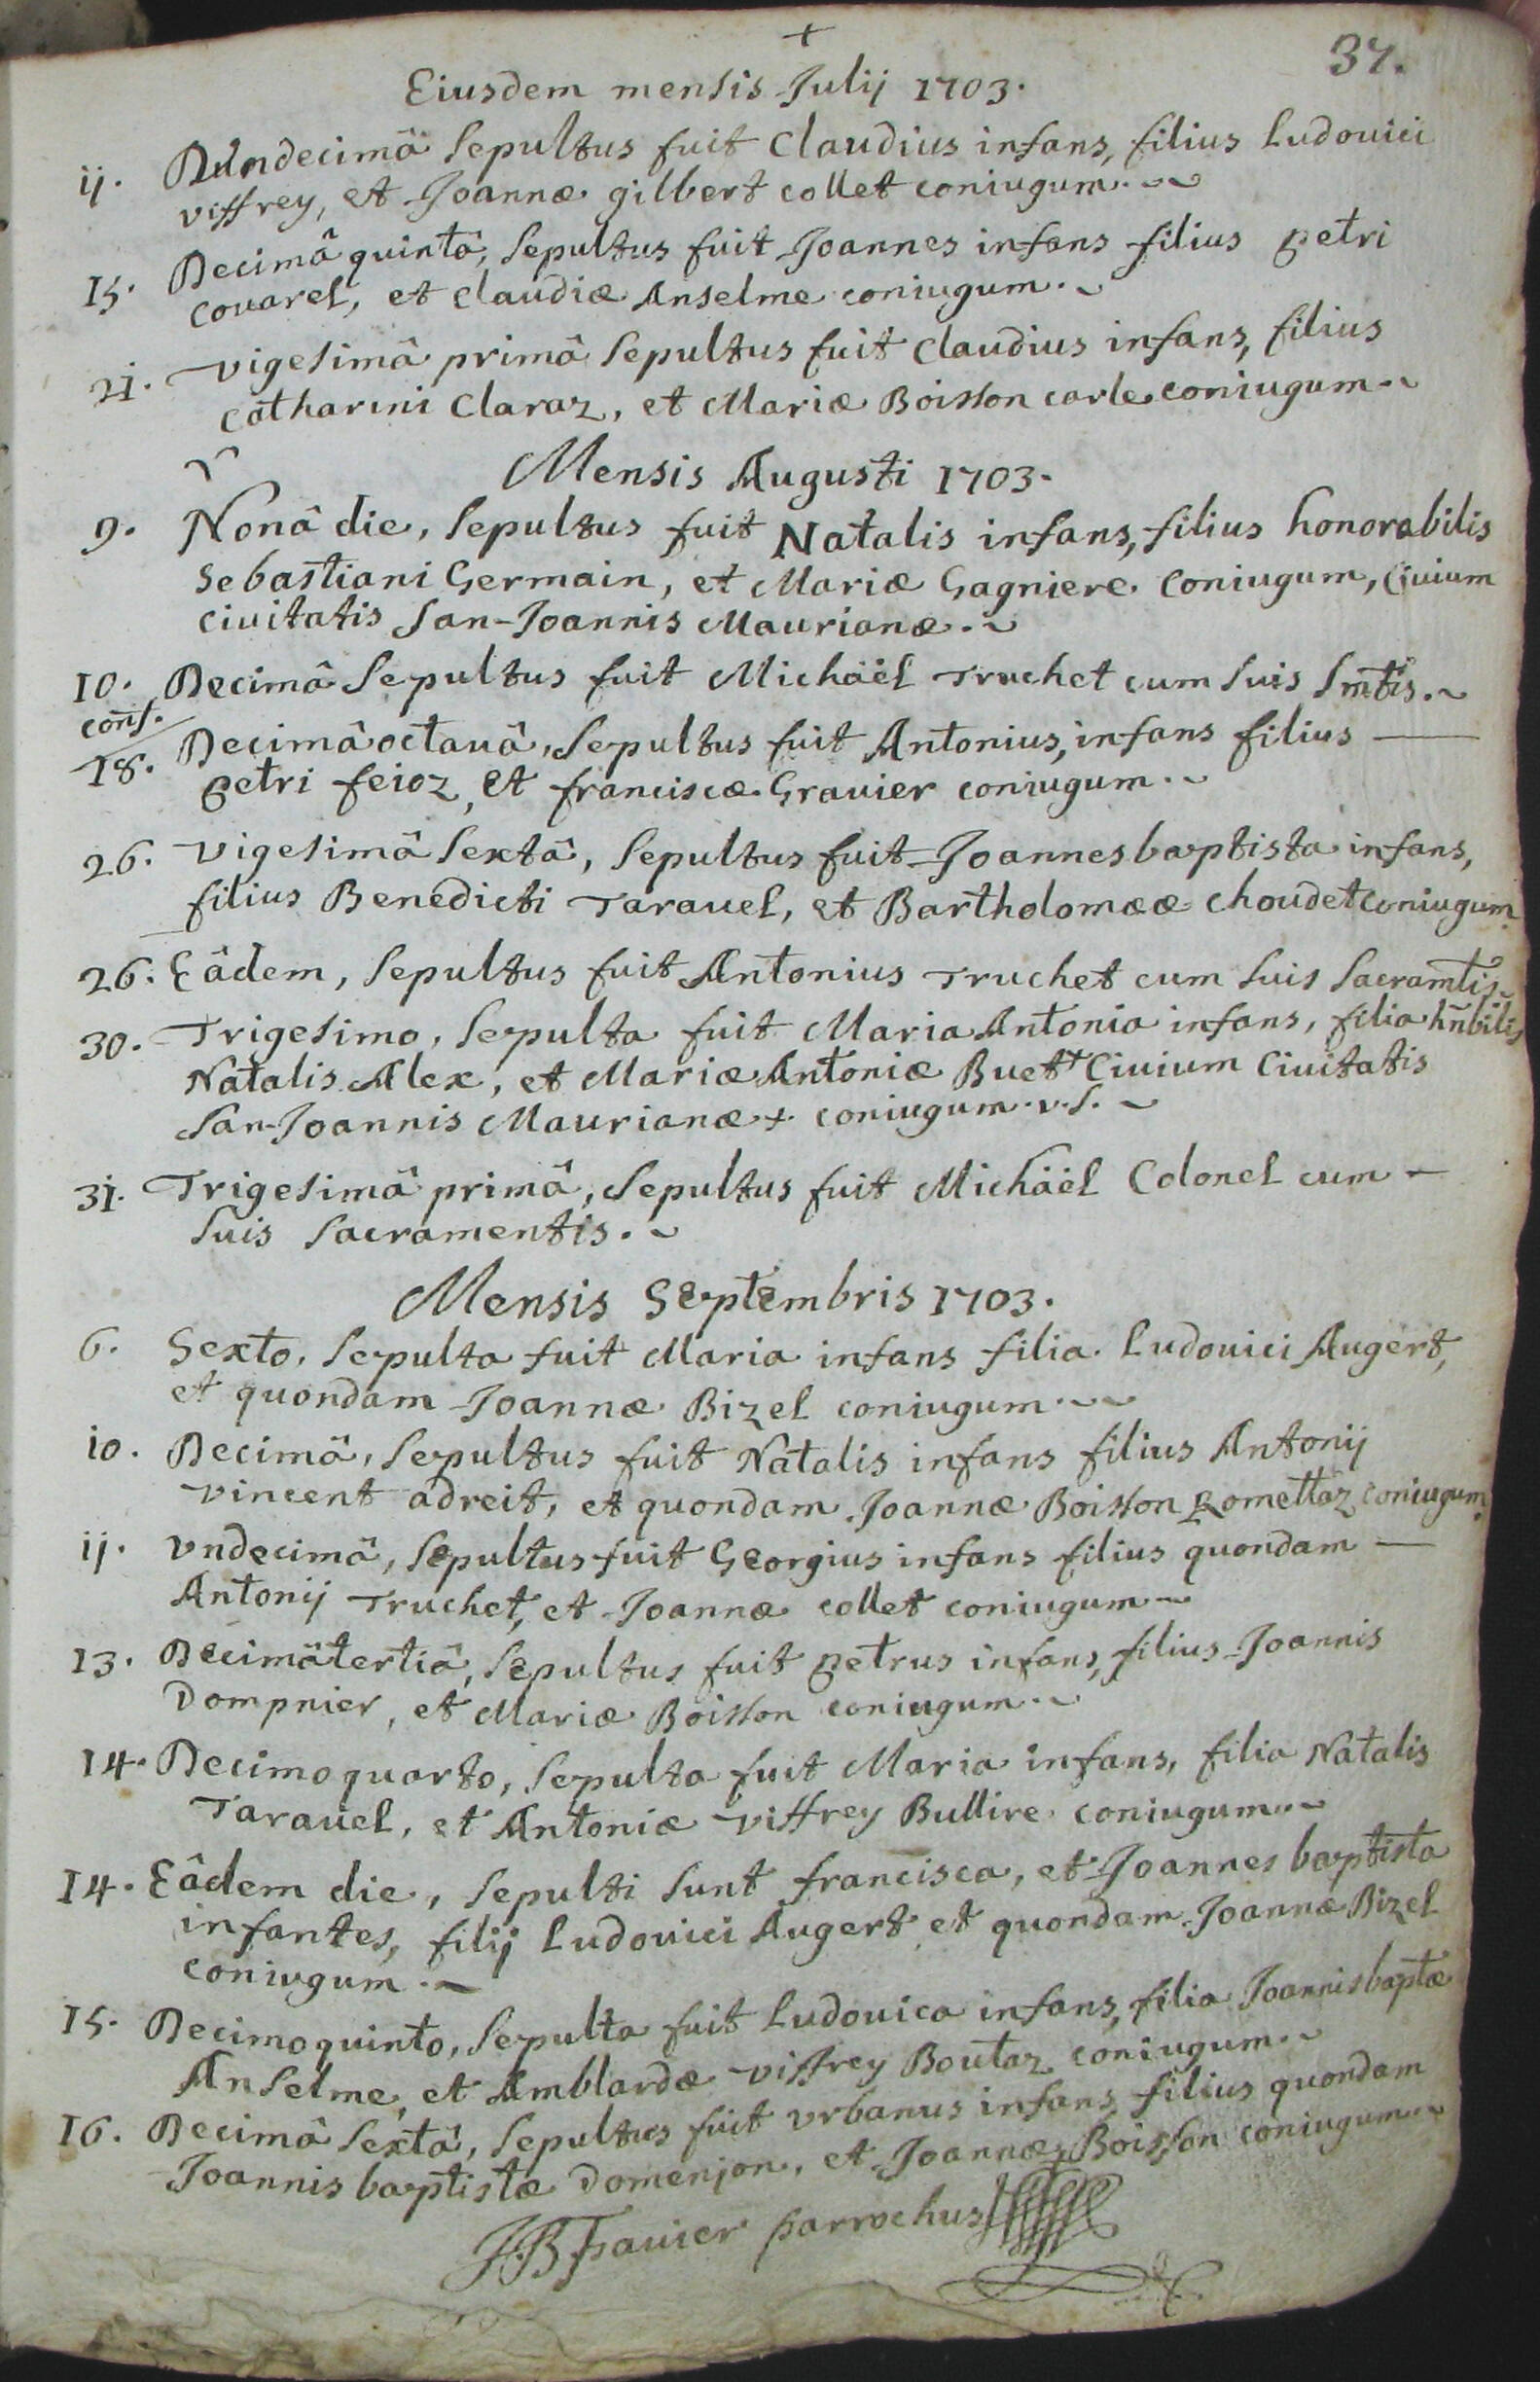 +
37.
Eiusdem mensis Julij 1703.
ij. Undecimâ Sepultus fuit Claudius infans, filius Ludouici
viffrey, et Joannæ gilbert collet coniugum.
15. Decimâ quintâ, Sepultus fuit Joannes infans filius petri
couarel, et claudiæ Anselme coniugum.
2j. vigesimâ primâ Sepultus fuit Claudius infans, filius
catharini Claraz, et Mariæ Boisson carle coniugum.
Mensis Augusti 1703.
9. Nonâ die, Sepultus fuit Natalis infans, filius honorabilis
Sebastiani Germain, et Mariæ Gagniere coniugum, Ciuium
ciuitatis San-Joannis Maurianæ.
10. Decimâ Sepultus fuit Michäel Truchet cum suis Smtis.
conf.
18. Decimâ octauâ, Sepultus fuit Antonius, infans filius
petri feioz, et franciscæ Grauier coniugum.
26. vigesimâ sextâ, Sepultus fuit Joannes baptista infans,
filius Benedicti Tarauel, et Bartholomææ choudet coniugum
26. Eâdem, Sepultus fuit Antonius Truchet cum suis Sacramtis
30. Trigesimo, Sepulta fuit Maria Antonia infans, filia hnbilis
Natalis Alex, et Mariæ Antoniæ Buet + Ciuium Ciuitatis
San-Joannis Maurianæ + coniugum. v. s.
3j. Trigesimâ primâ, Sepultus fuit Michäel Colonel cum
suis sacramentis.
Mensis Septembris 1703.
6. Sexto, Sepulta fuit Maria infans filia Ludouici Augert,
et quondam Joannæ Bizel coniugum.
io. Decimâ, Sepultus fuit Natalis infans filius Antonij
vincent adreit, et quondam Joannæ Boisson Romettaz coniugum
ij. vndecimâ, Sepultus fuit Georgius infans filius quondam
Antonij Truchet, et Joannæ collet coniugum
13. Decimâtertiâ, Sepultus fuit petrus infans, filius Joannis
Dompnier, et Mariæ Boisson coniugum.
14. Decimoquarto, Sepulta fuit Maria infans, filia Natalis
Tarauel, et Antoniæ viffrey Bullire coniugum.
14. Eâdem die, Sepulti sunt francisca, et Joannes baptista
infantes, filij Ludouici Augert et quondam Joannæ Bizel
coniugum.
15. Decimoquinto, Sepulta fuit Ludouica infans, filia Joannisbaptæ
Anselme, et Amblardæ viffrey Boutaz coniugum.
16. Decimâ sextâ, Sepultus fuit vrbanus infans filius quondam
Joannis baptistæ Domenjon, et Joannæ Boisson coniugum.
JB Fauier parrochus